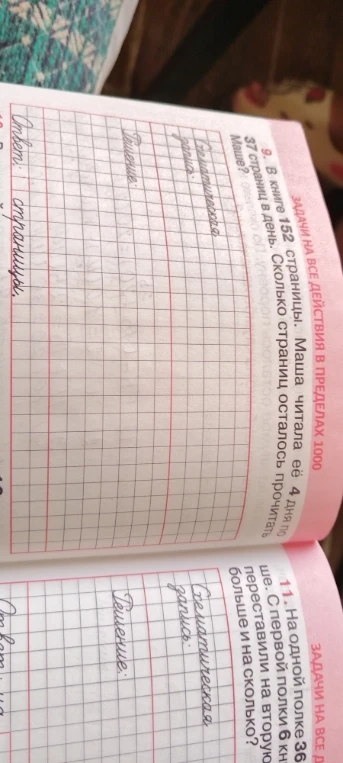 ЗАДАЧИ НА ВСЕ ДЕЙСТВИЯ В ПРЕДЕЛАХ 1000
9. В книге 152 страницы. Маша читала её 4 дня по
37 страниц в день. Сколько страниц осталось прочитать
Маше?
Схематическая
запись:
Решение:
Ответ: страницы.
ЗАДАЧИ НА ВСЕ
11. На одной полке 36
ше. С первой полки 6 кн
переставили на вторую
больше и на сколько?
Схематическая
запись:
Решение:
Ответ: на